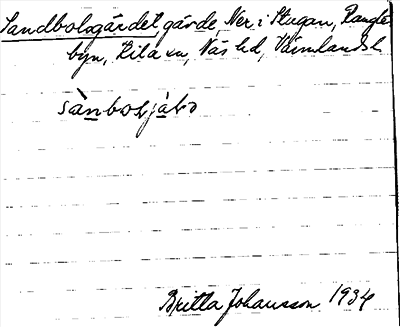 Sandbolsgärdet gärde, Ner i Stugan, Flangle
byn, Kila sn, Näs hd, Värmlands l.
sànbosjàḷə
Britta Johansson 1934